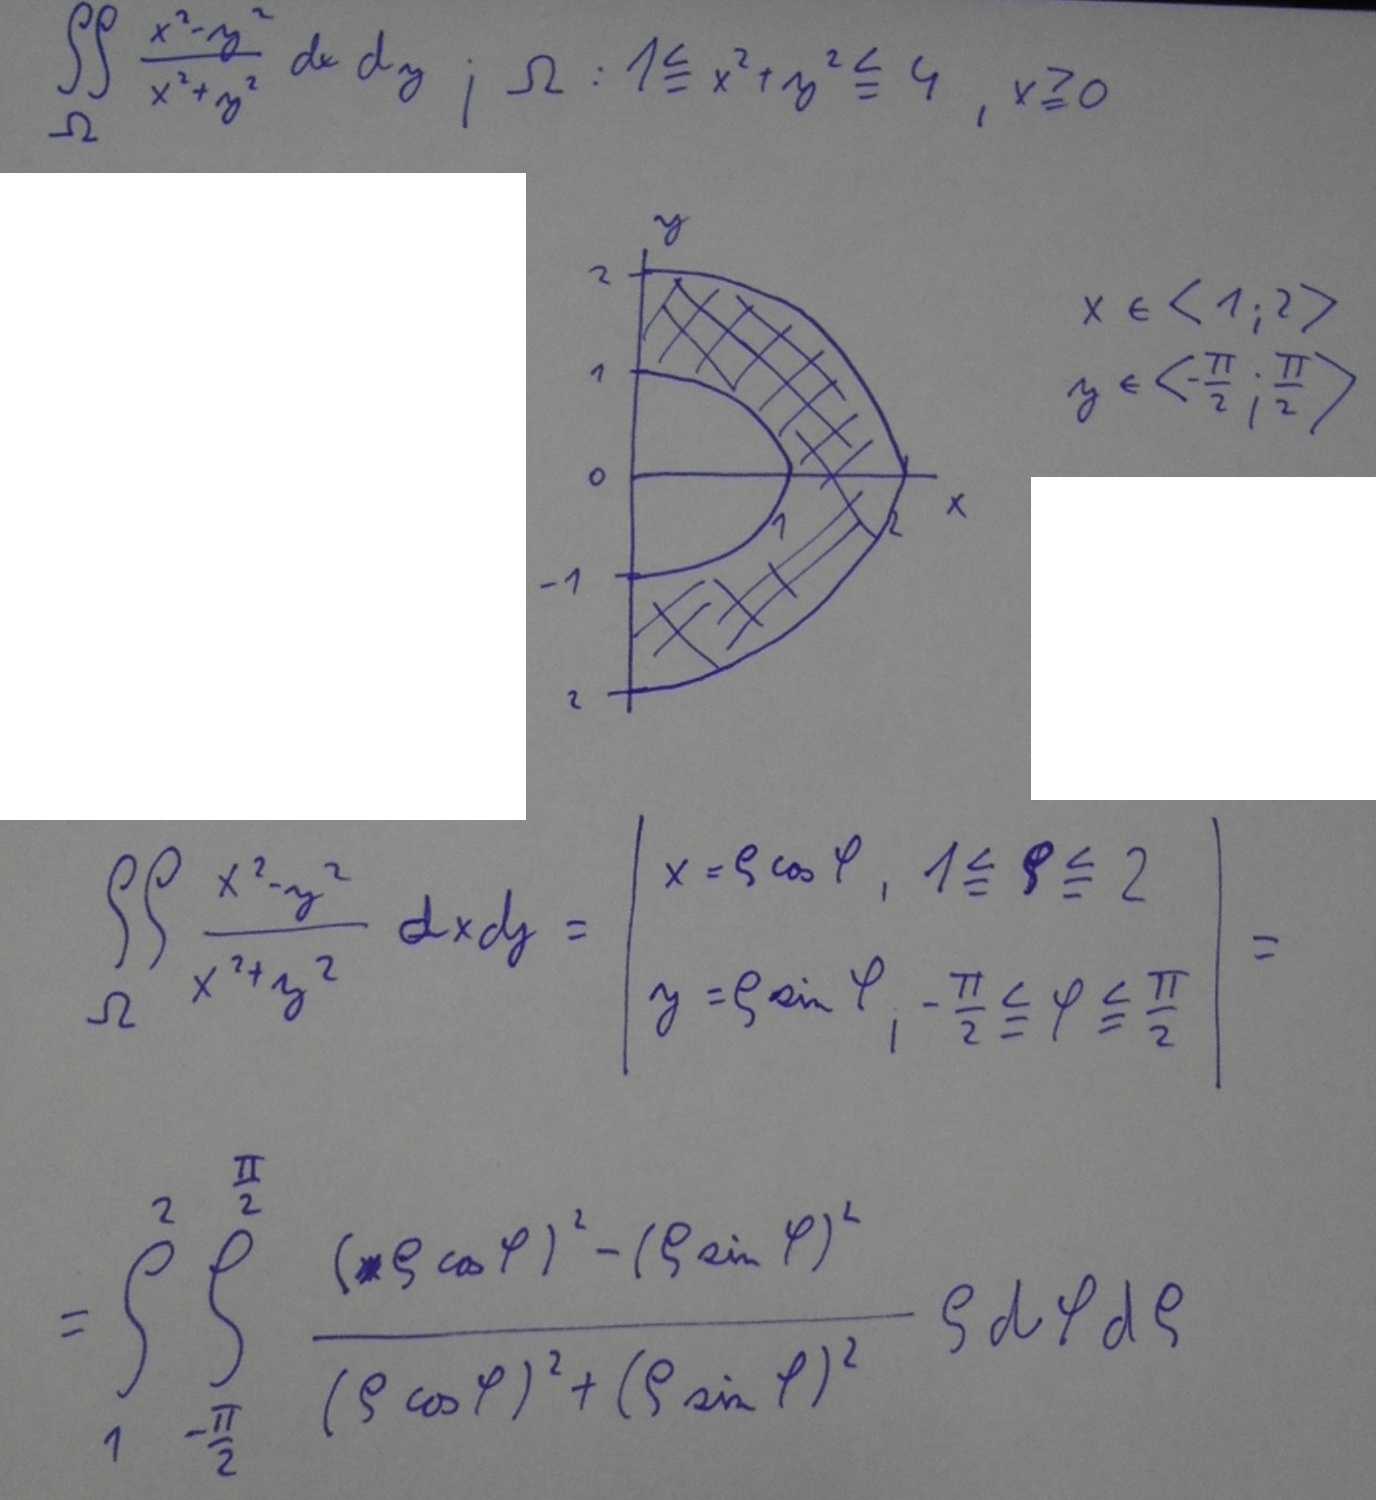 ∬ (x²-y²)/(x²+y²) dx dy ; Ω : 1 ≦ x²+y² ≦ 4 , x ≧ 0
Ω
y
2
1
0
-1
2
1
2
x
x ∈ <1;2>
y ∈ <-π/2 ; π/2>
∬ (x²-y²)/(x²+y²) dxdy = | x = ρ cos φ , 1 ≦ ρ ≦ 2
Ω
y = ρ sin φ , -π/2 ≦ φ ≦ π/2 | =
= ∫₁² ∫_{-π/2}^{π/2} ((ρ cos φ)² - (ρ sin φ)²)/((ρ cos φ)² + (ρ sin φ)²) ρ dφ dρ